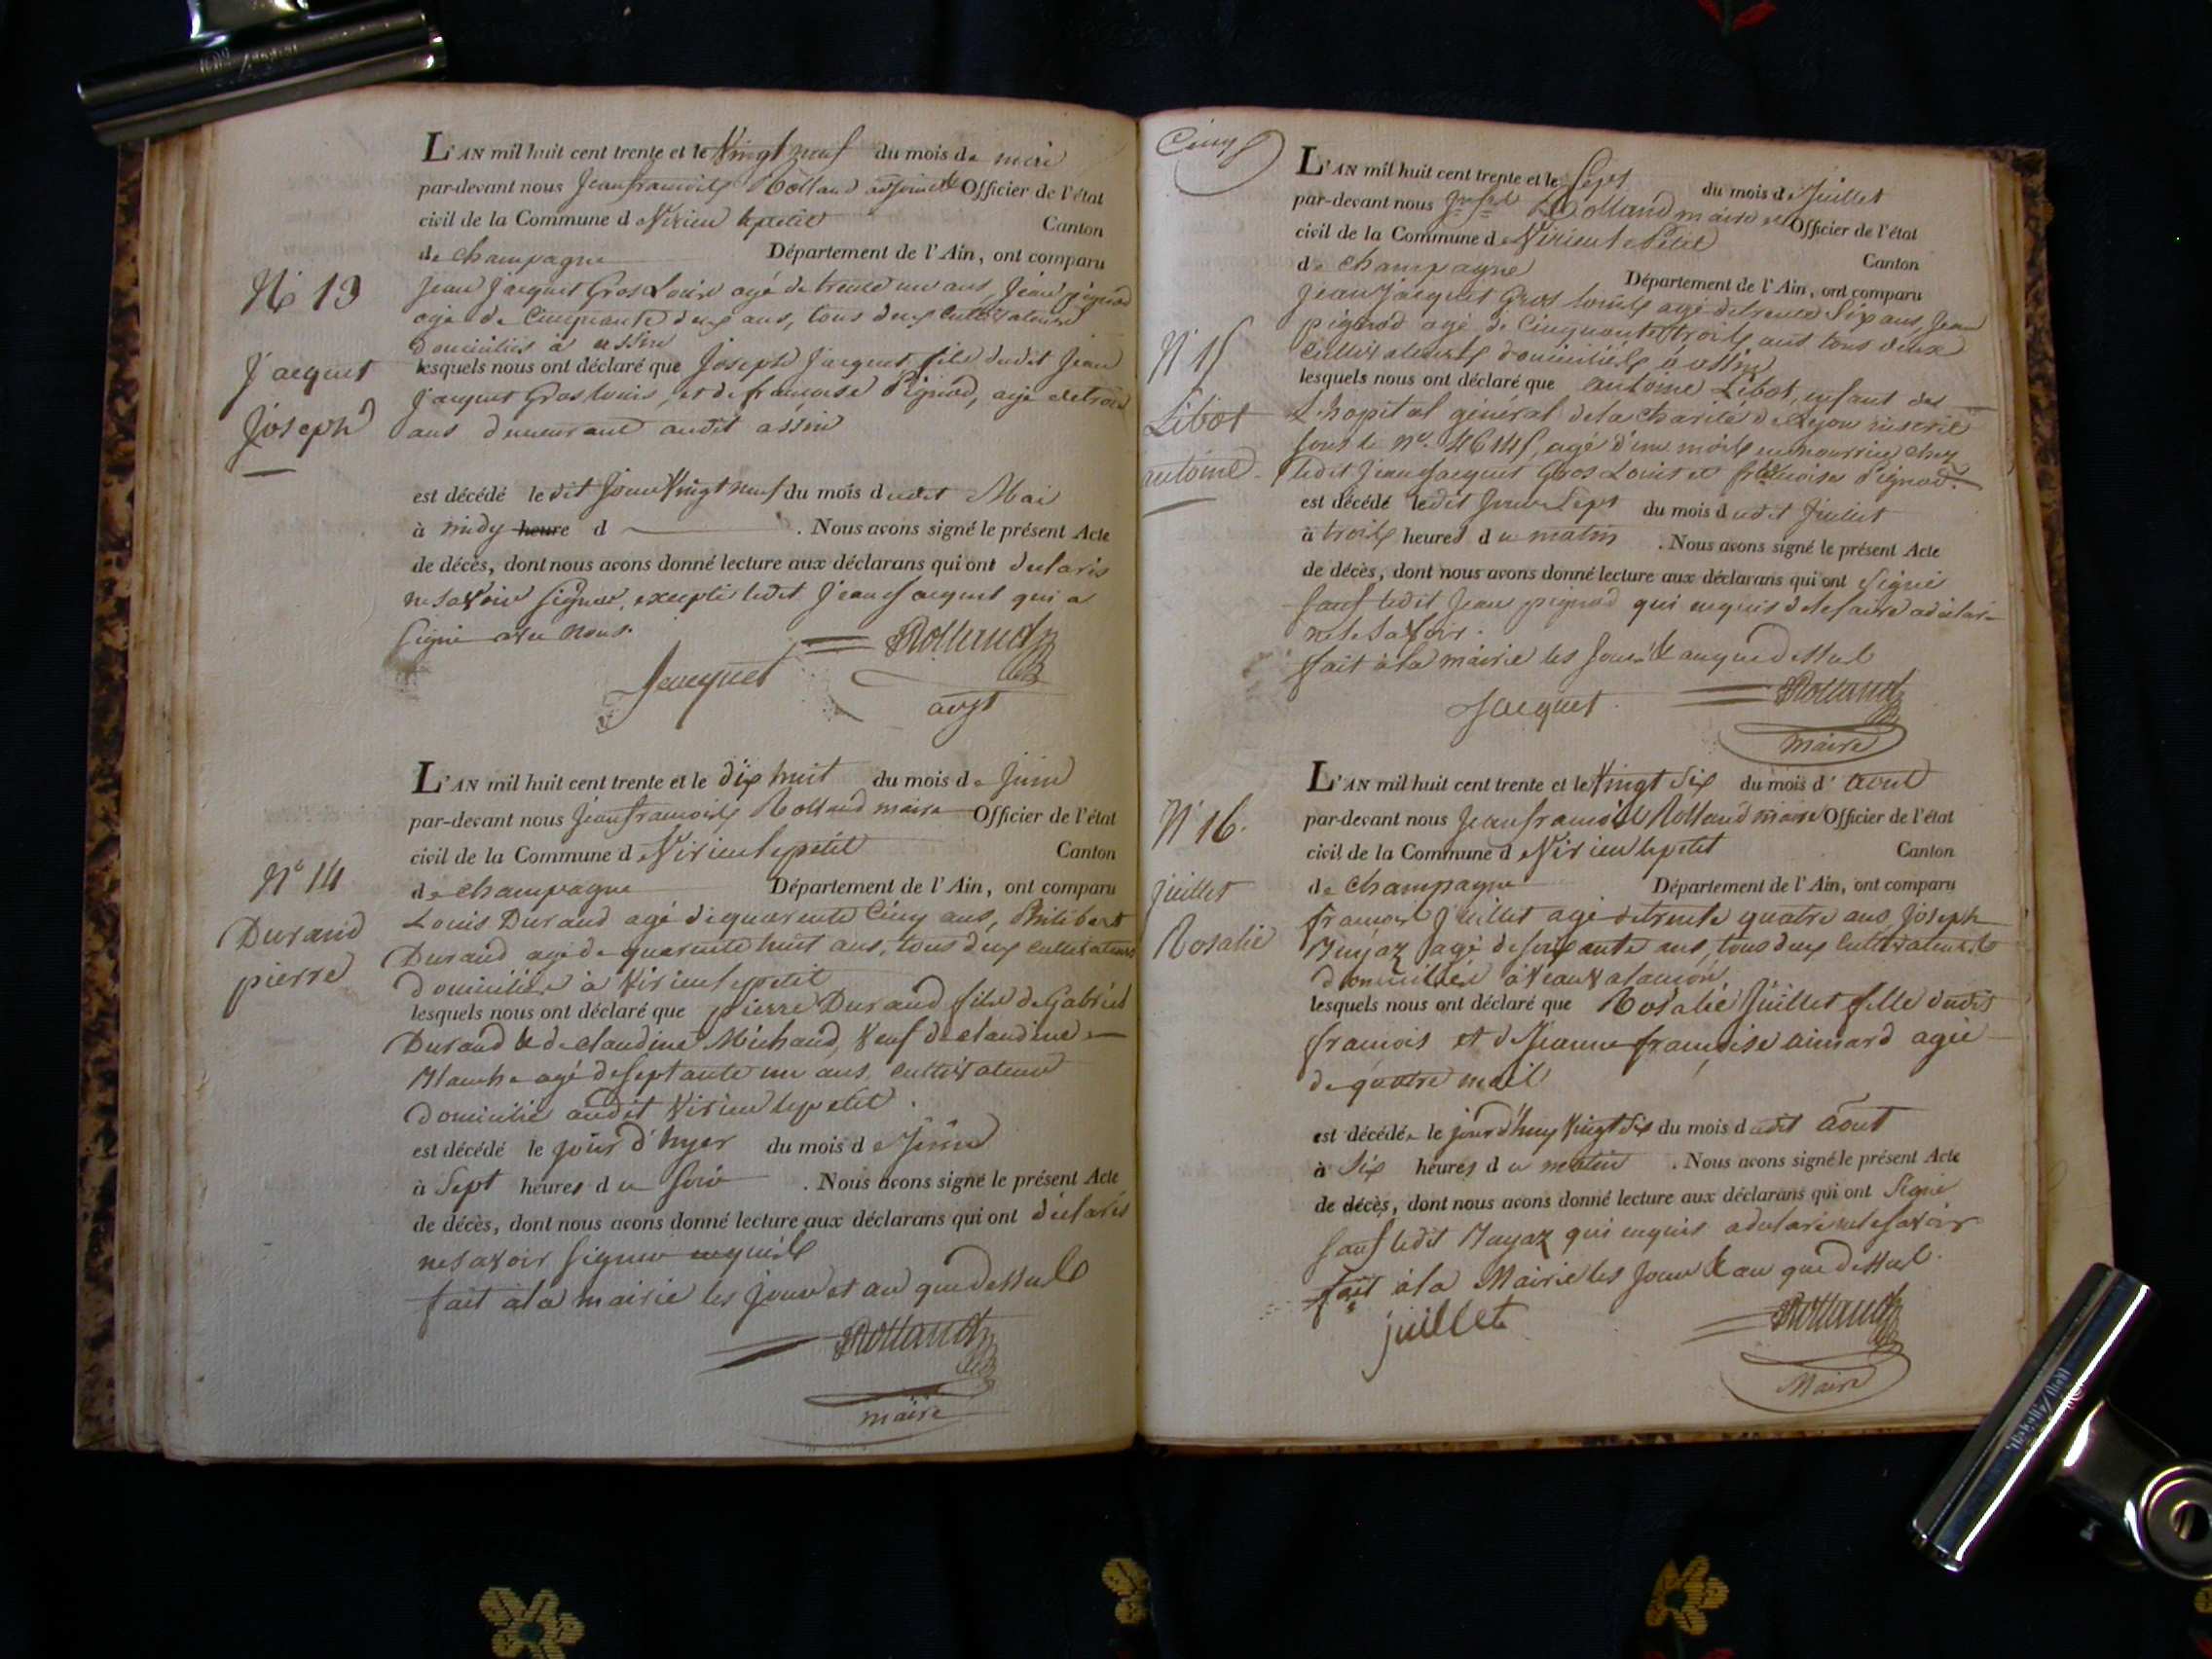 L'AN mil huit cent trente et le Vingt neuf du mois de mai
par-devant nous Jean francois Rolland adjoint Officier de l'état
civil de la Commune de Virieu le petit Canton
de Champagne Département de l'Ain, ont comparu
N° 13
Jean Jacquet Gros Louis agé de trente un ans, Jean pignod
agé de Cinquante deux ans, tous deux Cultivateurs
domiciliés à assin
Jacquet
Joseph
lesquels nous ont déclaré que Joseph Jacquet, fils dudit Jean
Jacquet Gros Louis, et de françoise Pignod, agé de trois
ans demeurant audit assin
est décédé le dit Jour Vingt neuf du mois dudit Mai
à midy heure d . Nous avons signé le présent Acte
de décès, dont nous avons donné lecture aux déclarans qui ont declaré
ne savoir signer, excepté ledit Jean Jacquet qui a
signé avec nous.
Jacquet Rolland
adjt
L'AN mil huit cent trente et le dix huit du mois de Juin
par-devant nous Jean francois Rolland maire Officier de l'état
civil de la Commune de Virieu le petit Canton
N° 14
de Champagne Département de l'Ain, ont comparu
Durand
pierre
Louis Durand agé de quarente Cinq ans, Philibert
Durand agé de quarente huit ans, tous deux cultivateurs
domiciliés à Virieu le petit
lesquels nous ont déclaré que pierre Durand fils de Gabriel
Durand & de claudine Michaud, Veuf de claudine
Blanche agé de septante un ans, cultivateur
domicilié audit Virieu le petit.
est décédé le jour d'hyer du mois de Juin
à Sept heures du soir . Nous avons signé le présent Acte
de décès, dont nous avons donné lecture aux déclarans qui ont déclaré
ne savoir signer enquis
fait à la mairie les jour et an que dessus
Rolland
maire
Cinq
L'AN mil huit cent trente et le Sept du mois de Juillet
par-devant nous Jn fs Rolland maire et Officier de l'état
civil de la Commune de Virieu le Petit Canton
de Champagne Département de l'Ain, ont comparu
N° 15
Libot
antoine
Jean Jacquet Gros Louis agé de trente Six ans, Jean
pignod agé de Cinquante trois ans tous deux
cultivateurs domiciliés à assin
lesquels nous ont déclaré que antoine Libot, enfant de
L'hopital général de la Charité de Lyon inscrit
sous le n°. 46145, agé d'un mois en nourrice chez
ledit Jean Jacquet Gros Louis et françoise Pignod.
est décédé ledit Jour Sept du mois dudit Juillet
à trois heures du matin . Nous avons signé le présent Acte
de décès, dont nous avons donné lecture aux déclarans qui ont Signé
sauf ledit Jean pignod qui enquis de le faire a déclaré
ne le savoir.
fait à la mairie les Jour & an que dessus
Jacquet Rolland
maire
L'AN mil huit cent trente et le Vingt Six du mois d' aout
par-devant nous Jean francois Rolland maire Officier de l'état
civil de la Commune de Virieu le petit Canton
de Champagne Département de l'Ain, ont comparu
N° 16.
juillet
Rosalie
francois Juillet agé de trente quatre ans, Joseph
agé de soixante ans, tous deux Cultivateurs
domiciliés à
lesquels nous ont déclaré que Rosalie Juillet fille dudit
francois et de Jeanne françoise aimard agée
de quatre mois
est décédée le jourd'huy Vingt Six du mois dudit Aout
à Six heures du matin . Nous avons signé le présent Acte
de décès, dont nous avons donné lecture aux déclarans qui ont Signé
sauf ledit qui enquis a declaré ne le savoir
fait à la Mairie les Jour & an que dessus.
juillet Rolland
Maire